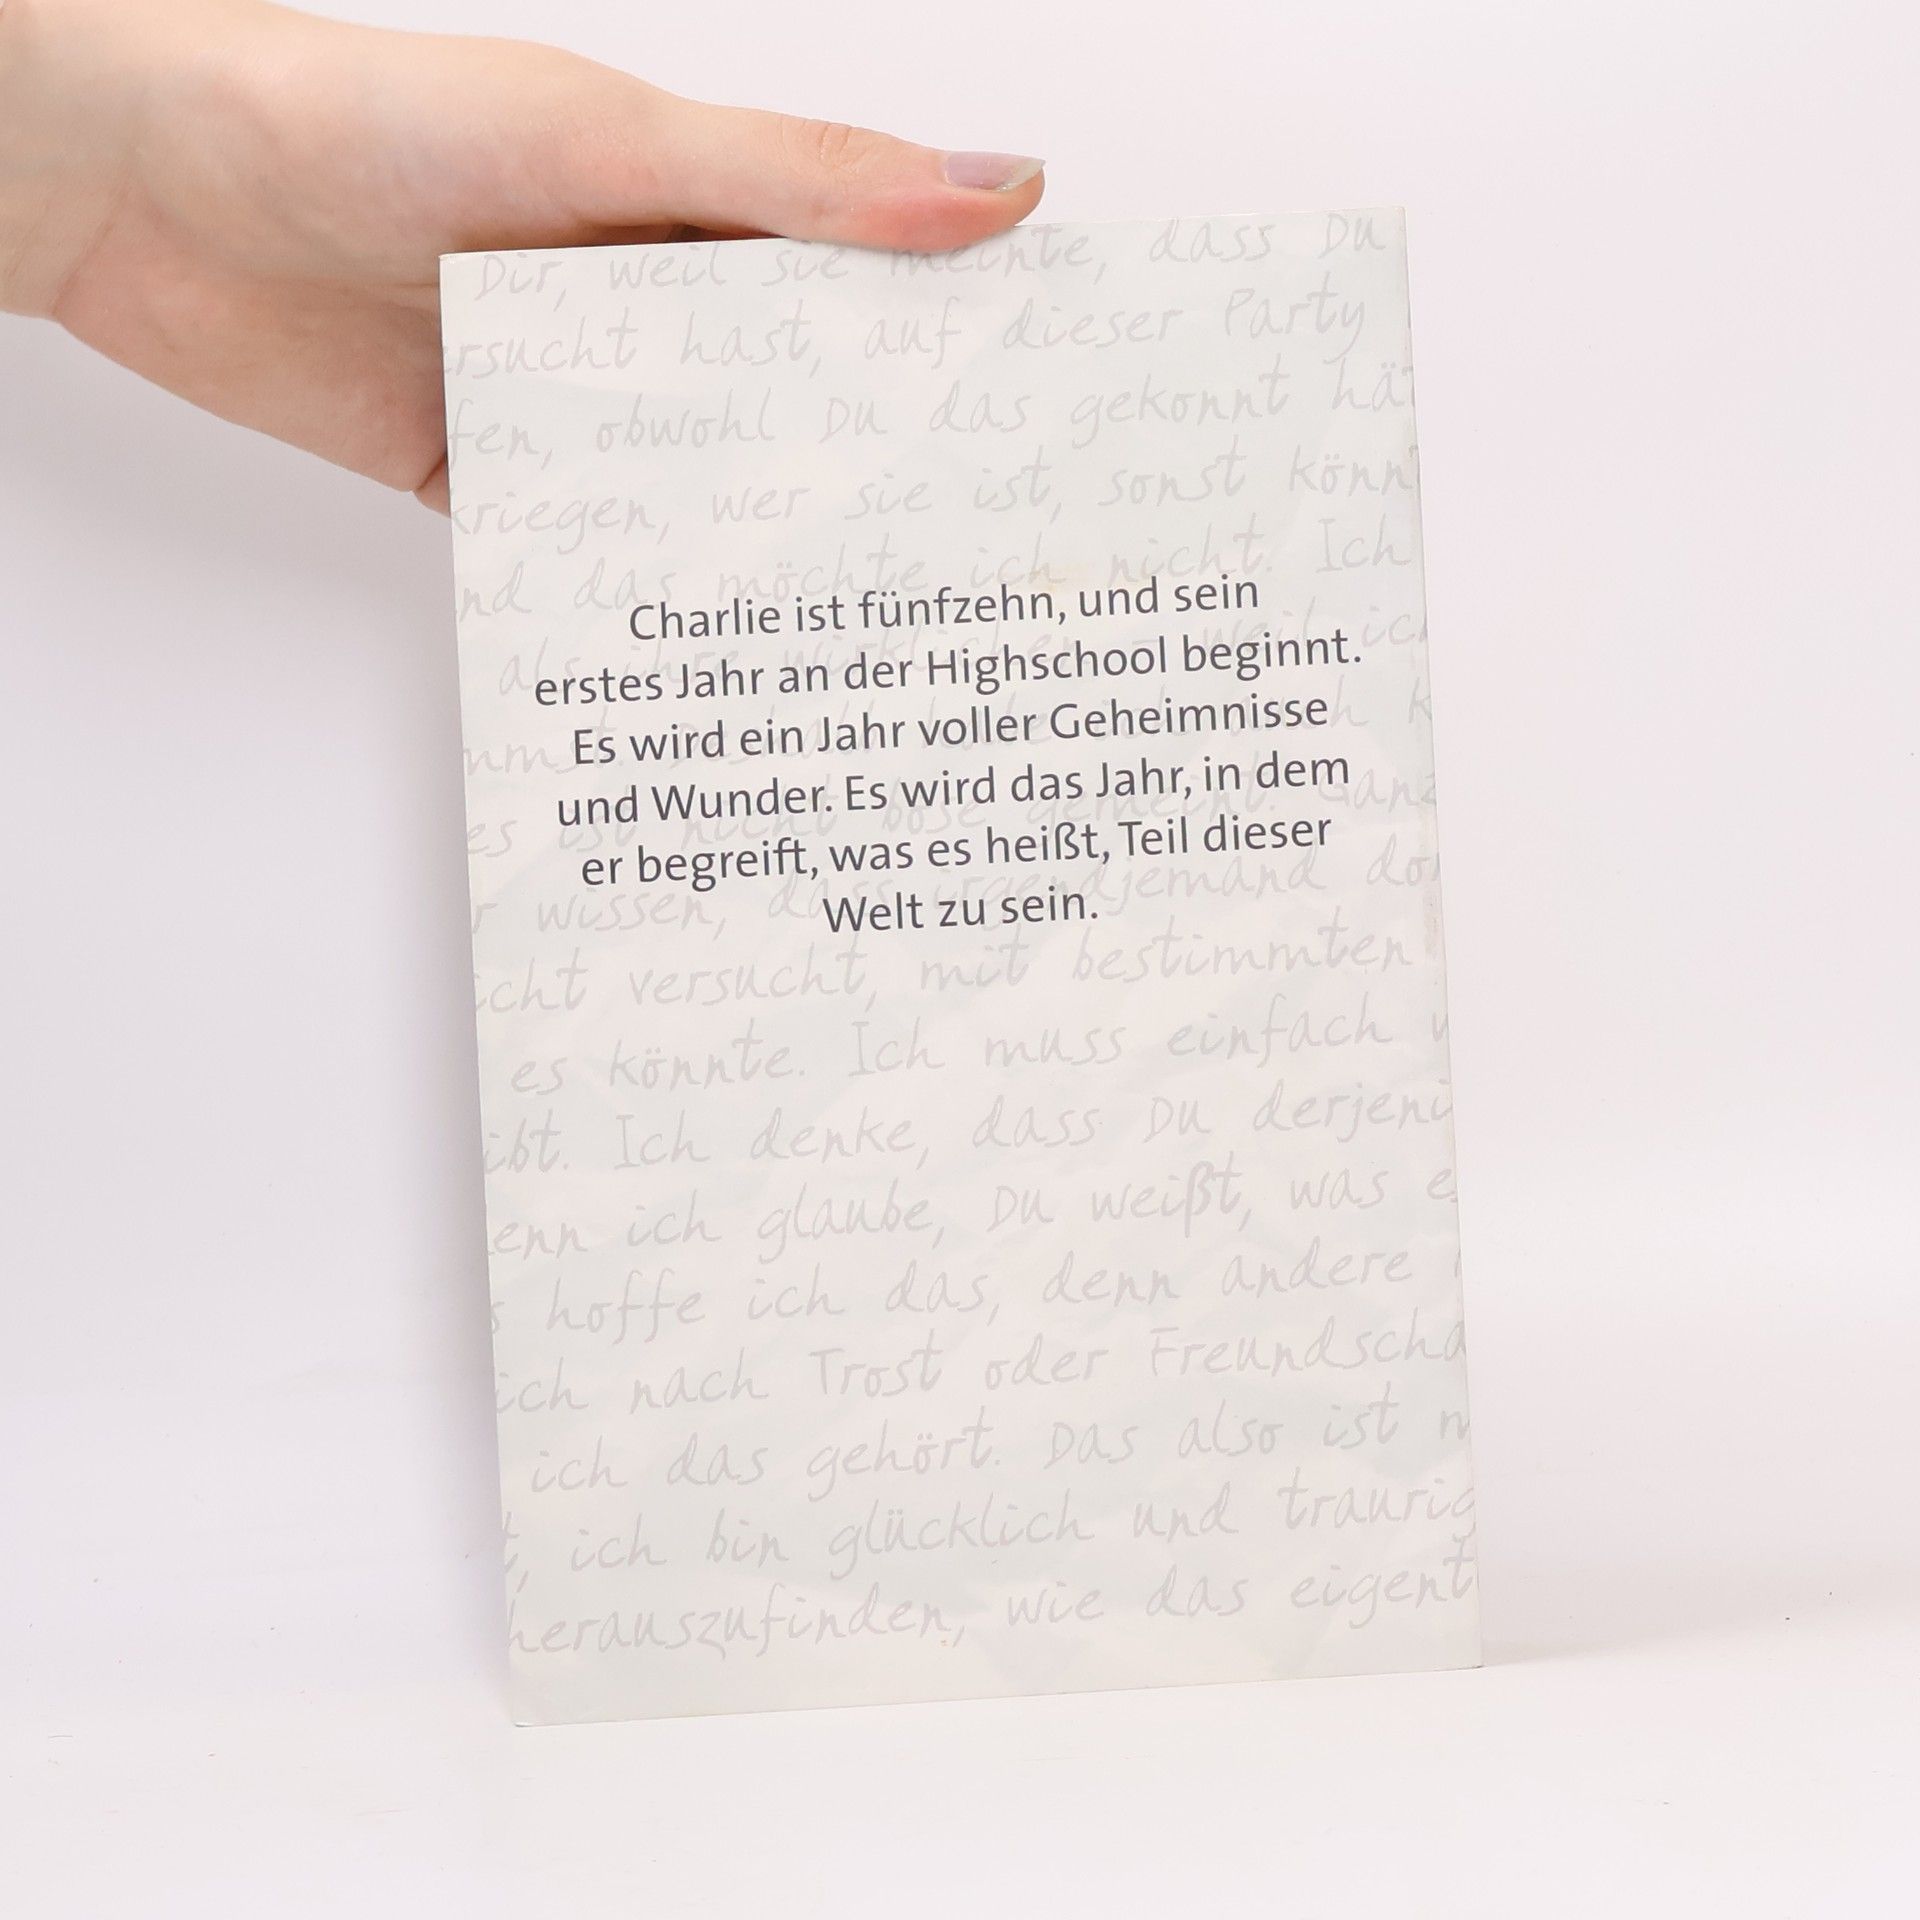 Dir, weil sie meinte, dass Du
rsucht hast, auf dieser Party
fen, obwohl Du das gekonnt hät
kriegen, wer sie ist, sonst könnt
nd das möchte ich nicht. Ich
Charlie ist fünfzehn, und sein
als ihre wirklichen weil ich
erstes Jahr an der Highschool beginnt.
Es wird ein Jahr voller Geheimnisse
und Wunder. Es wird das Jahr, in dem
es ist nicht böse gemeint. Ganz
er begreift, was es heißt, Teil dieser
r wissen, dass irgendjemand do
Welt zu sein.
icht versucht, mit bestimmten
es könnte. Ich muss einfach
ibt. Ich denke, dass Du derjeni
enn ich glaube, Du weißt, was e
s hoffe ich das, denn andere
ich nach Trost oder Freundscha
ich das gehört. Das also ist m
t, ich bin glücklich und traurig
herauszufinden, wie das eigent